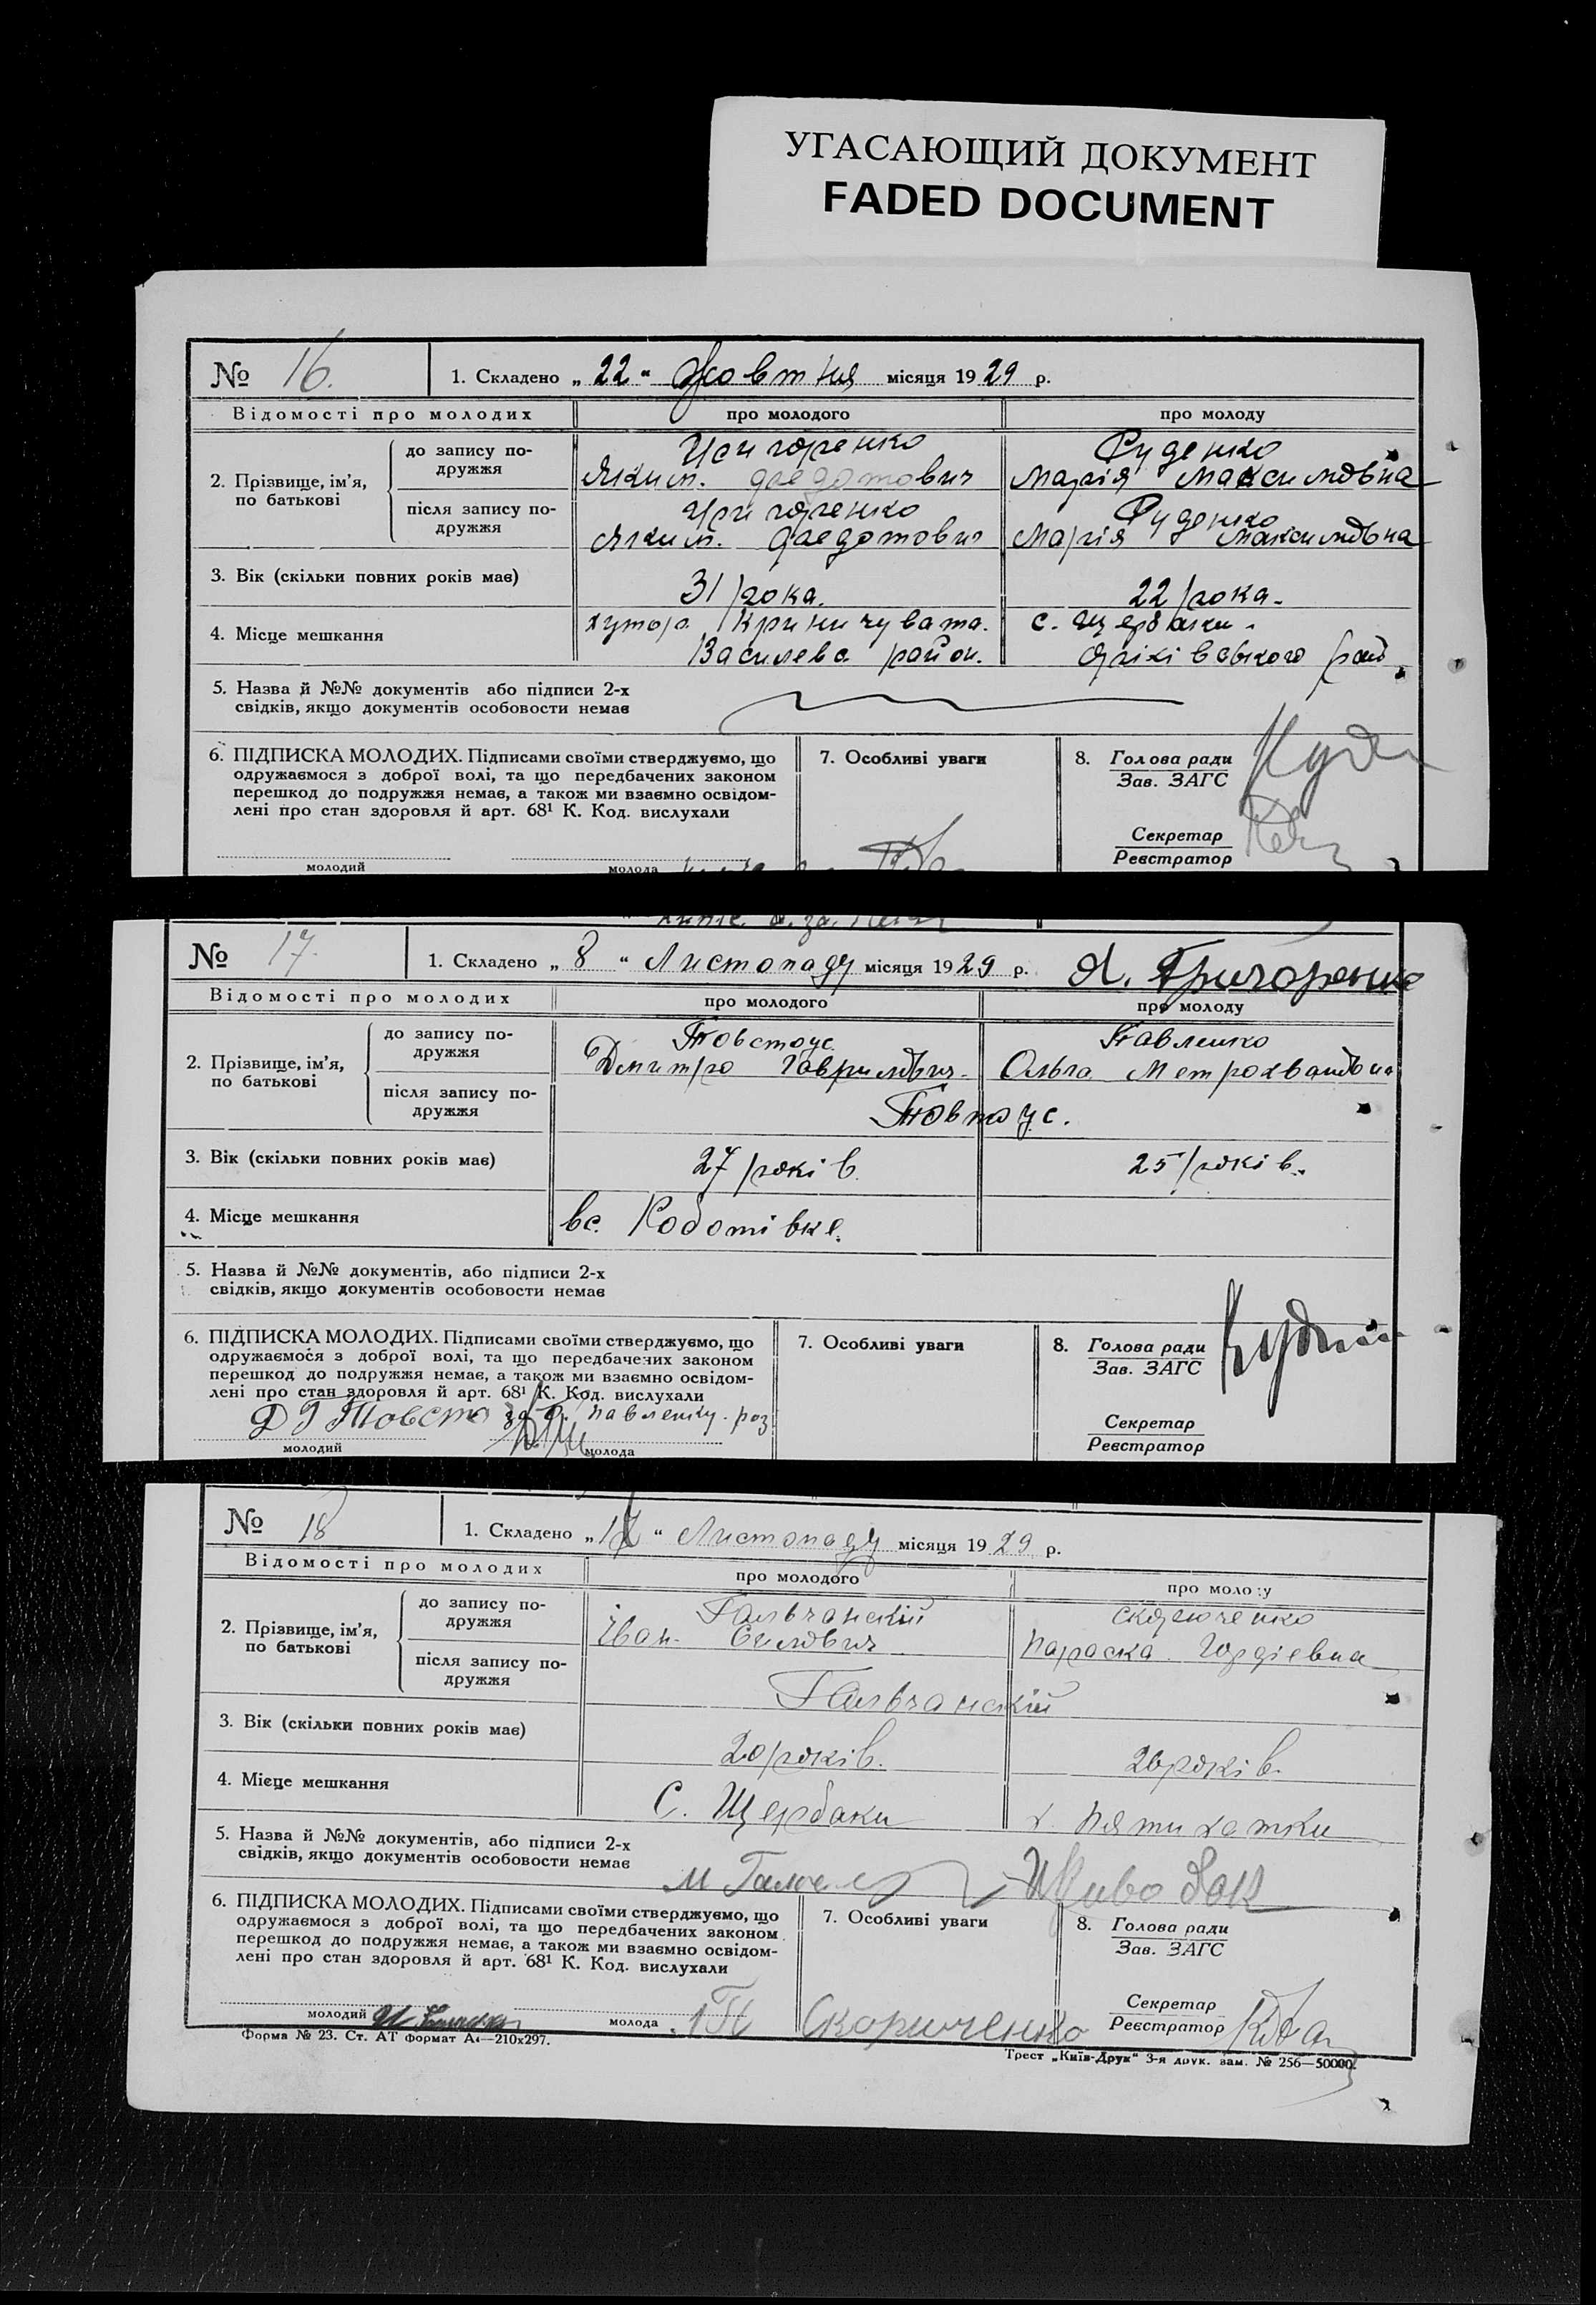 УГАСАЮЩИЙ ДОКУМЕНТ
FADED DOCUMENT
№ 16. 1. Складено „ 22 “ Жовтня місяця 1929 р.
Відомості про молодих про молодого про молоду
2. Прізвище, ім'я, по батькові
до запису по-
дружжя
Григоренко Руденко
Яким. Федотович Марія Максимовна
після запису по-
дружжя
Григоренко Руденко
Яким. Федотович Марія Максимовна
3. Вік (скільки повних років має) 31 рока. 22 рока.
4. Місце мешкання хутор Криничувата. с. Щербаки.
Василевс. район. Оріхівського рай.
5. Назва й №№ документів або підписи 2-х
свідків, якщо документів особовости немає
6. ПІДПИСКА МОЛОДИХ. Підписами своїми стверджуємо, що
одружаємося з доброї волі, та що передбачених законом
перешкод до подружжя немає, а також ми взаємно освідом-
лені про стан здоровля й арт. 68¹ К. Код. вислухали
молодий молода
7. Особливі уваги
8. Голова ради
Зав. ЗАГС
Секретар
Реєстратор
№ 17. 1. Складено „ 8 “ Листопаду місяця 1929 р. Я. Григоренко
Відомості про молодих про молодого про молоду
2. Прізвище, ім'я, по батькові
до запису по-
дружжя
Товстоус. Павленко
Дмитро Гаврилович. Ольга Метрохвановна
після запису по-
дружжя
Товтоус.
3. Вік (скільки повних років має) 27 років. 25 років.
4. Місце мешкання вс.
5. Назва й №№ документів, або підписи 2-х
свідків, якщо документів особовости немає
6. ПІДПИСКА МОЛОДИХ. Підписами своїми стверджуємо, що
одружаємося з доброї волі, та що передбачених законом
перешкод до подружжя немає, а також ми взаємно освідом-
лені про стан здоровля й арт. 68¹ К. Код. вислухали
Д Г Товсто за Павленку. роз
молодий молода
7. Особливі уваги
8. Голова ради
Зав. ЗАГС
Секретар
Реєстратор
№ 18 1. Складено „ “ Листопаду місяця 1929 р.
Відомості про молодих про молодого про молоду
2. Прізвище, ім'я, по батькові
до запису по-
дружжя
Гальчанский Скориченко
Іван. Параска Гордіевна
після запису по-
дружжя
Гальчанский
3. Вік (скільки повних років має) 20 років. 20 років.
4. Місце мешкання С. Щербаки х. Пятихатки
5. Назва й №№ документів, або підписи 2-х
свідків, якщо документів особовости немає
6. ПІДПИСКА МОЛОДИХ. Підписами своїми стверджуємо, що
одружаємося з доброї волі, та що передбачених законом
перешкод до подружжя немає, а також ми взаємно освідом-
лені про стан здоровля й арт. 68¹ К. Код. вислухали
молодий молода Скориченко
7. Особливі уваги
8. Голова ради
Зав. ЗАГС
Секретар
Реєстратор
Форма № 23. Ст. АТ формат А4—210x297.
Трест „Київ-Друк“ 3-я друк. зам. № 256—50000.